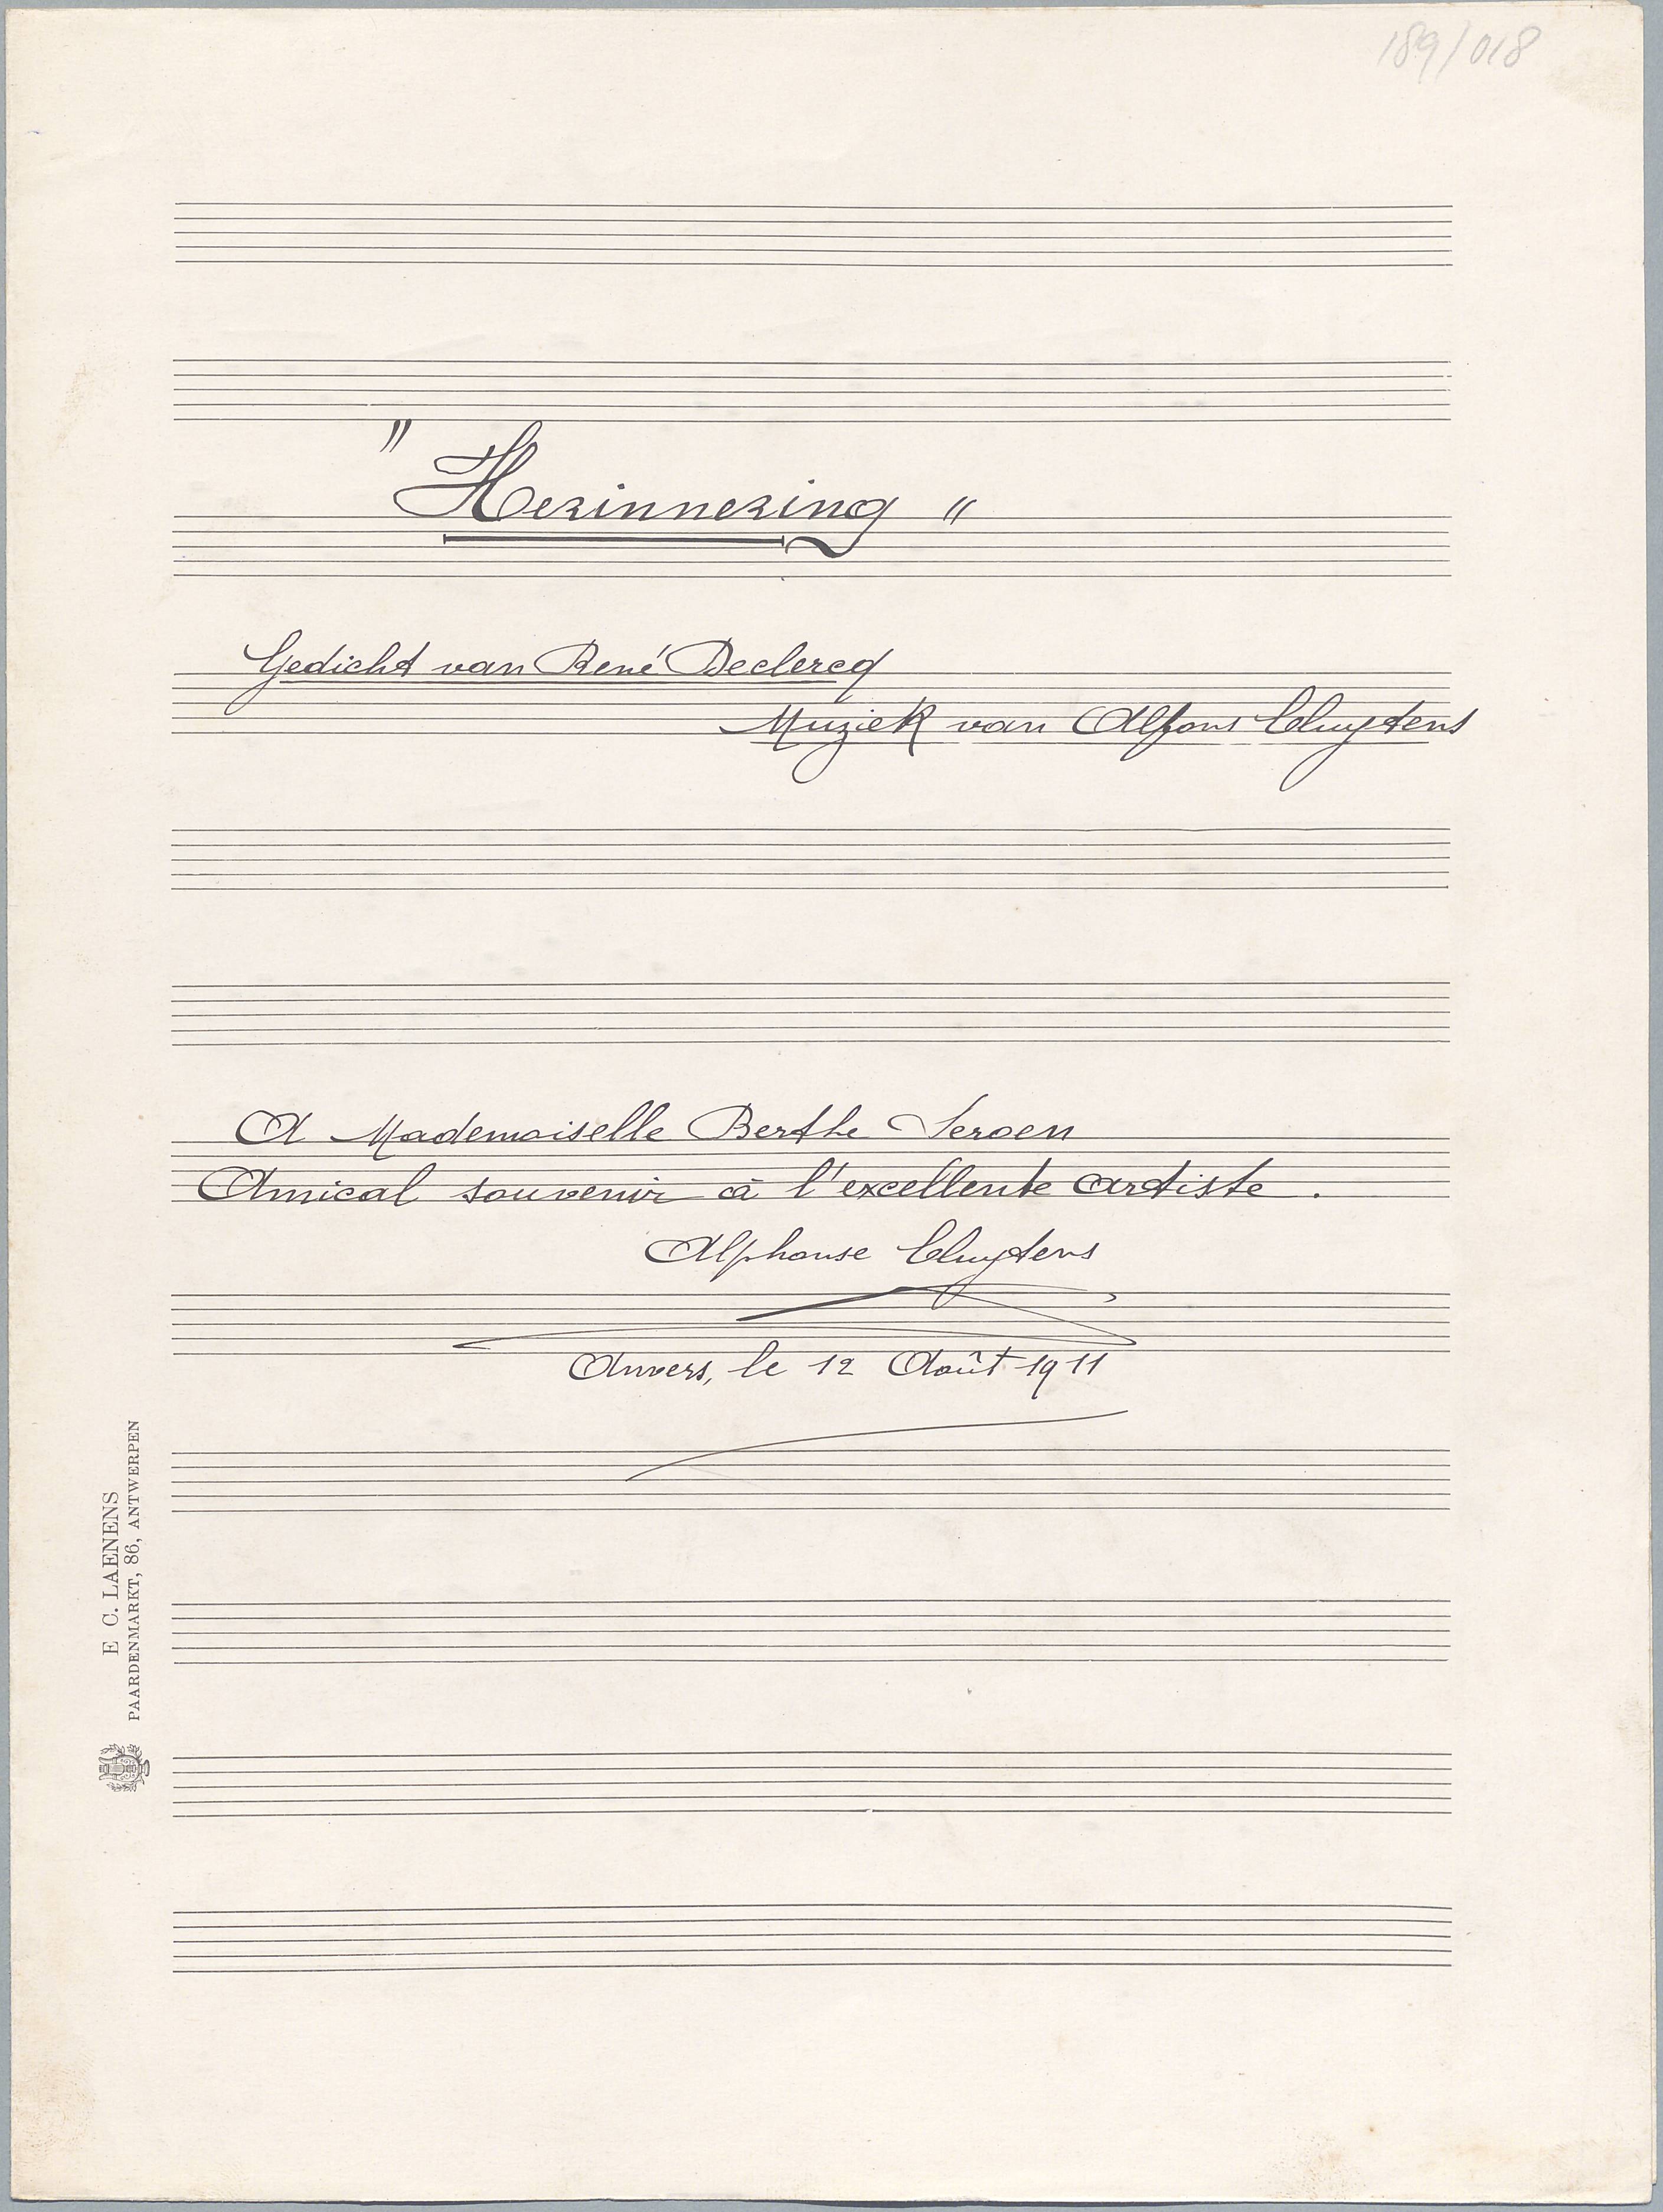 189/018
" Herinnering "
Gedicht van René Declercq
Muziek van Alfons Cluytens
A Mademoiselle Berthe Seroen
Amical souvenir à l'excellente artiste.
Alphonse Cluytens
Anvers, le 12 Août 1911
E C. LAENENS
PAARDENMARKT, 86, ANTWERPEN